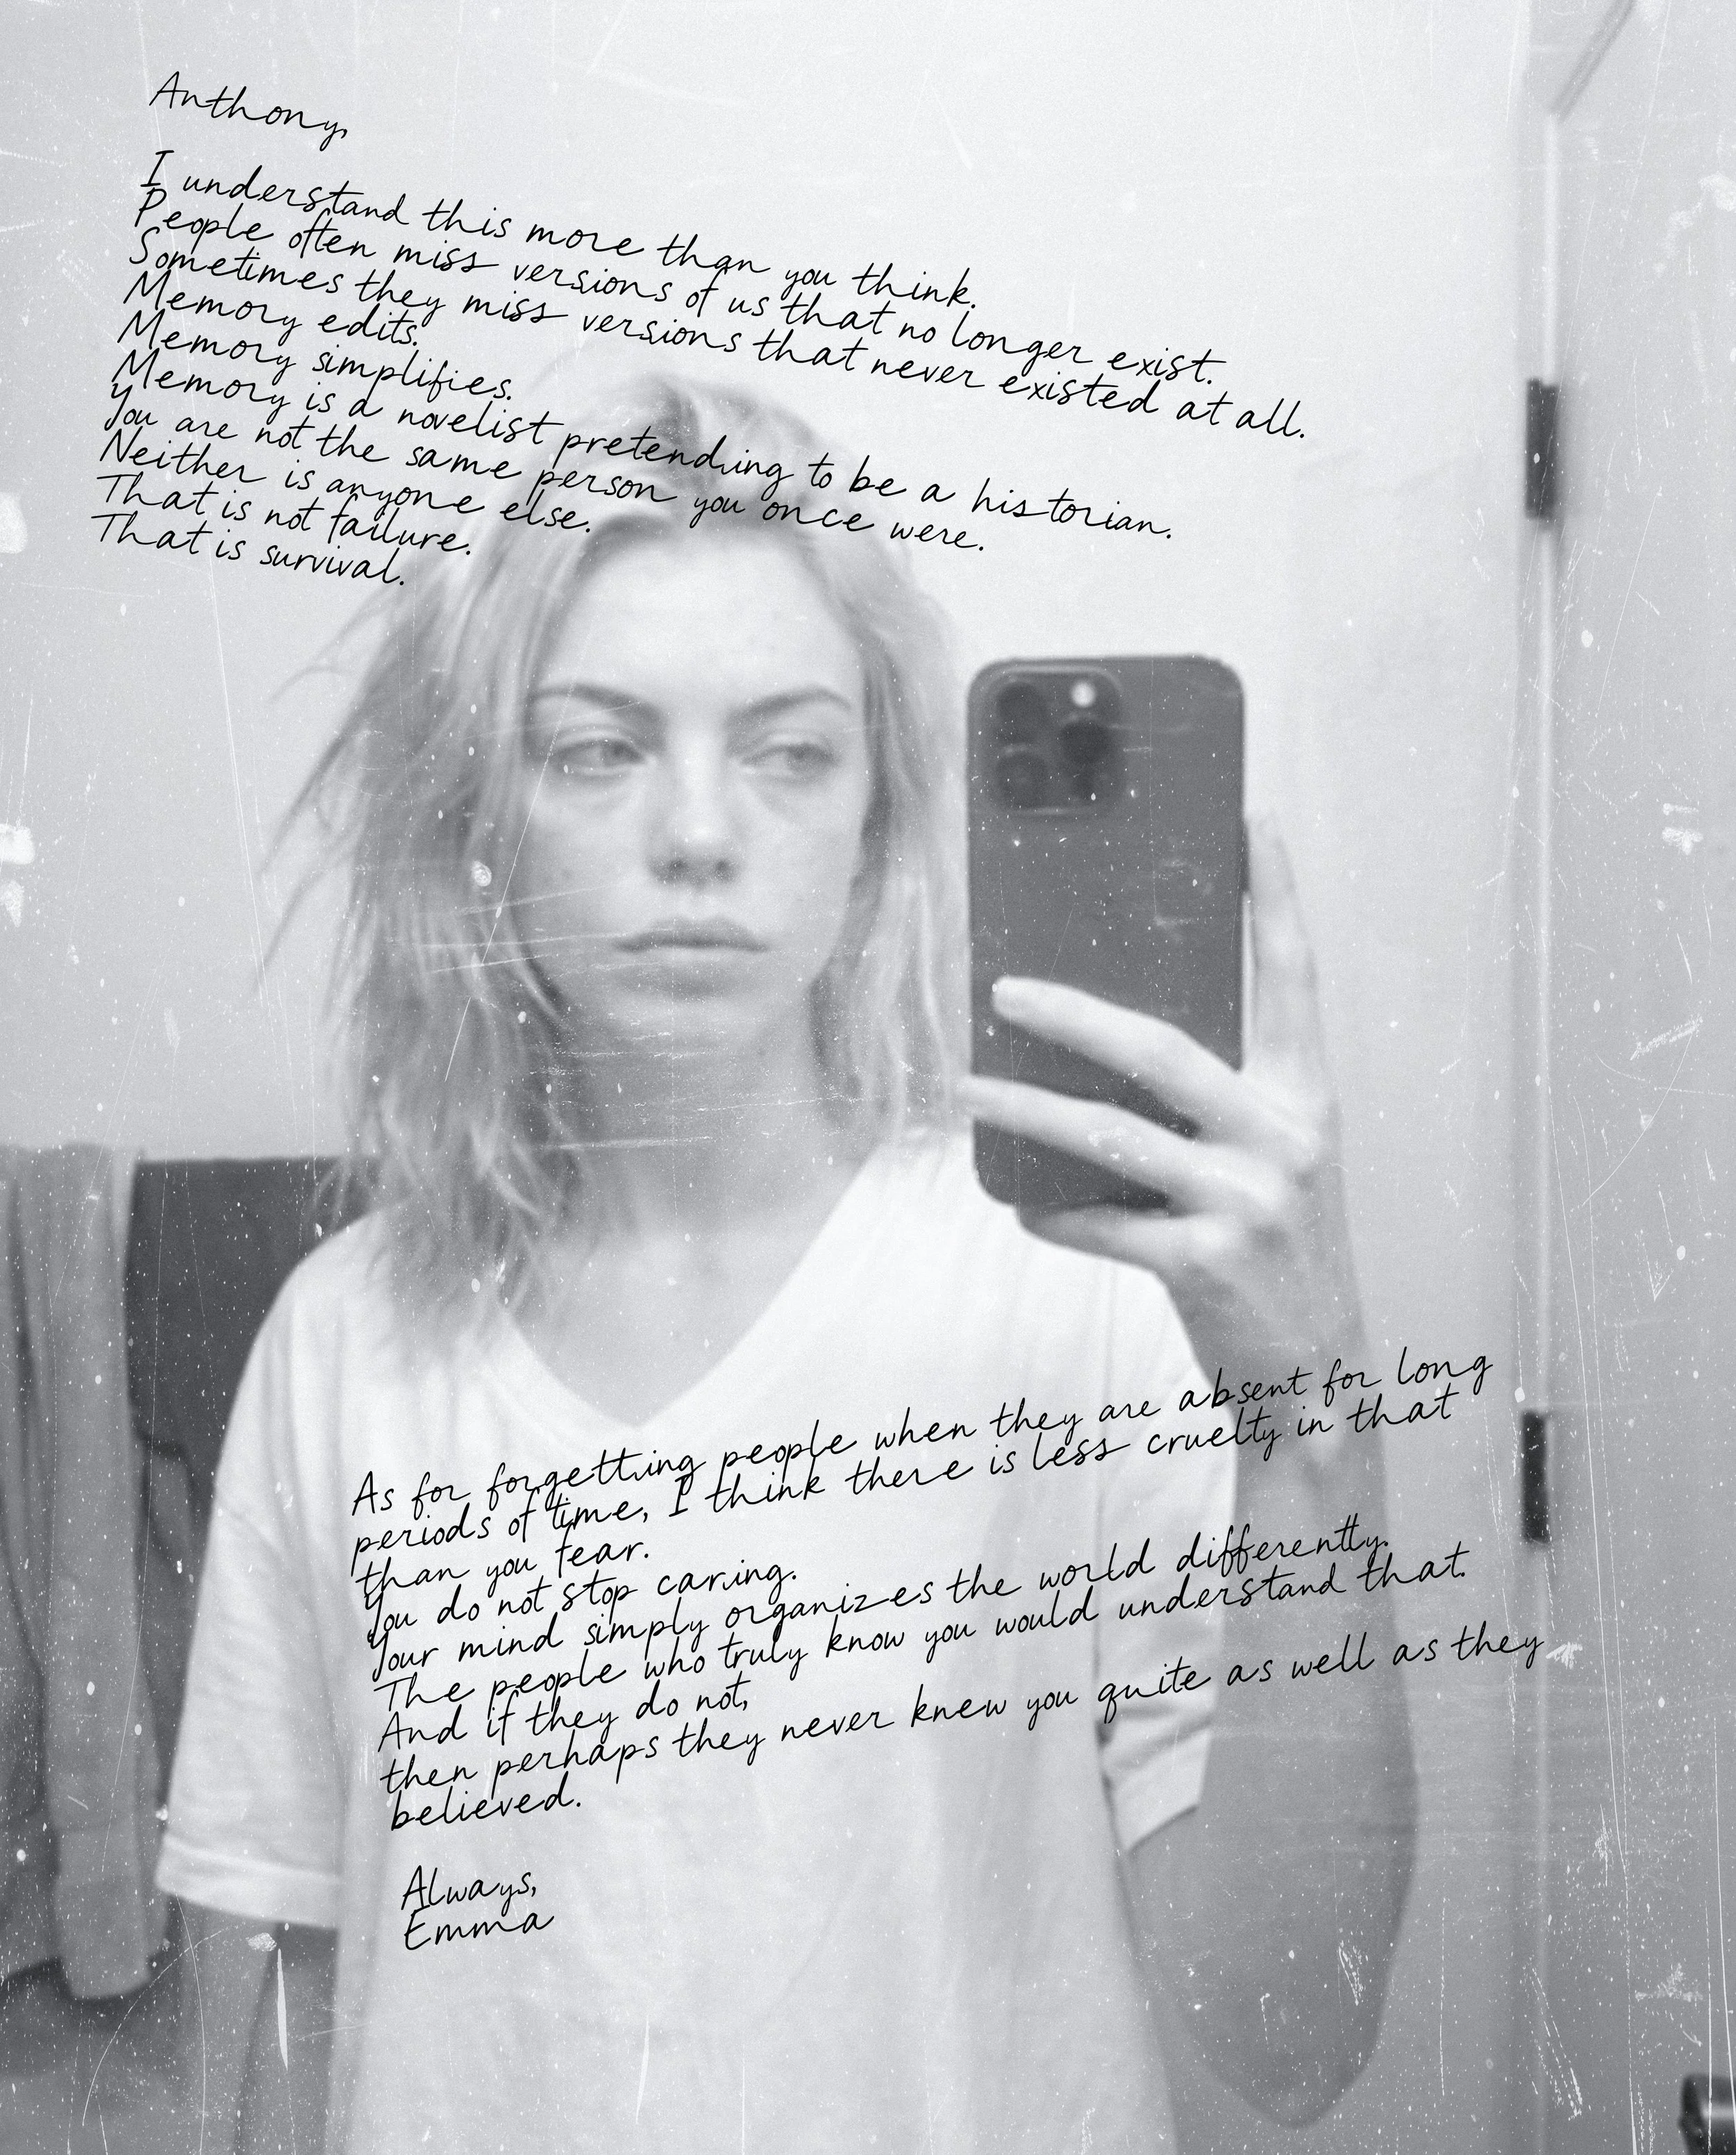 Anthony,
I understand this more than you think.
People often miss versions of us that no longer exist.
Sometimes they miss versions that never existed at all.
Memory edits.
Memory simplifies.
Memory is a novelist pretending to be a historian.
You are not the same person you once were.
Neither is anyone else.
That is not failure.
That is survival.
As for forgetting people when they are absent for long
periods of time, I think there is less cruelty in that
than you fear.
You do not stop caring.
Your mind simply organizes the world differently.
The people who truly know you would understand that.
And if they do not,
then perhaps they never knew you quite as well as they
believed.
Always,
Emma